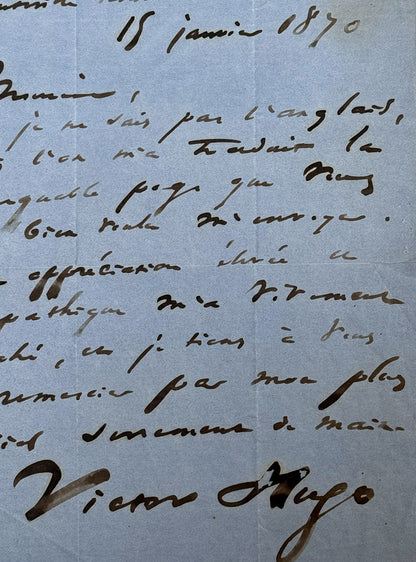 15 janvier 1870
je ne sais pas l'anglais,
l'on m'a traduit la
quable page que vous
bien voulu m'envoyer.
appréciation élevée et
pathique m'a vivement
ché, et je tiens à vous
remercier par mon plus
serrement de main.
Victor Hugo